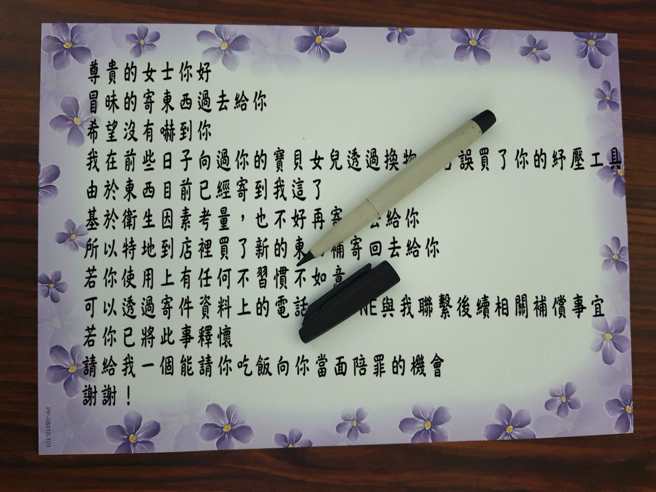 尊貴的女士你好
冒昧的寄東西過去給你
希望沒有嚇到你
我在前些日子向過你的寶貝女兒透過換物 誤買了你的紓壓工具
由於東西目前已經寄到我這了
基於衛生因素考量，也不好再寄 去給你
所以特地到店裡買了新的東 補寄回去給你
若你使用上有任何不習慣不如意
可以透過寄件資料上的電話 NE與我聯繫後續相關補償事宜
若你已將此事釋懷
請給我一個能請你吃飯向你當面陪罪的機會
謝謝！